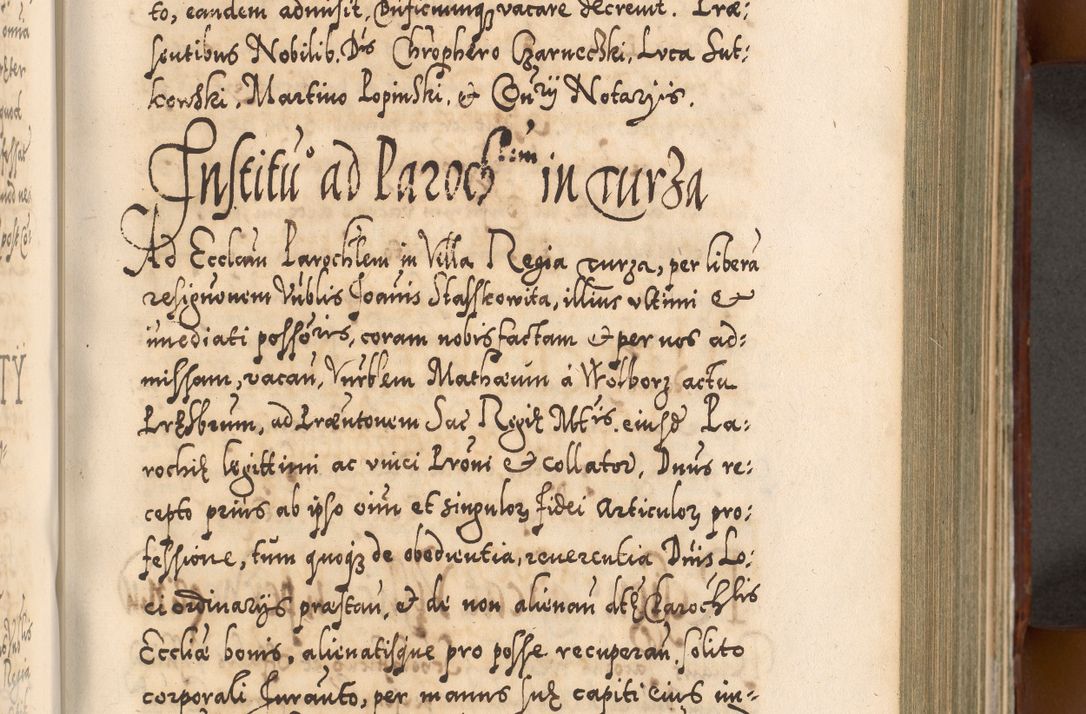 to, eandem admisit, Bñficiumq; vacare decrevit. Præ:
sentibus Nobilib. Dis Chrophero Czarnecžki, Luca Sut:
kowski, Martino Popinski, & Coñrÿ Notarÿs.
Institũ° ad Paroch:em in Turza
Ad Ecclam Parochlem in Villa Regia Turza, per liberã
resignonem Vñblis Joanis Stasskowita, illius ultimi &
imediati possõris, coram nobis factam & per nos ad:
missam, vacañ, Vñrblem Mathæum á Wolborz actu
Prƶsbrum, ad Præntonem Sac Regiæ Mttis. eiusđ Pa:
rochiæ legittimi ac unici Prõni & collator, Dnus re:
cepto prius ab ipso oim et singulor fidei Articulor pro:
fessione, tum quoq; de obedientia, reverentia Dnis Lo:
ci ordinarÿs præstan, & de non alienan dtæ Parochlis
Eccliæ bonis, alienatisque pro posse recuperan, solito
corporali Juranto, per manus suæ capiti eius im: